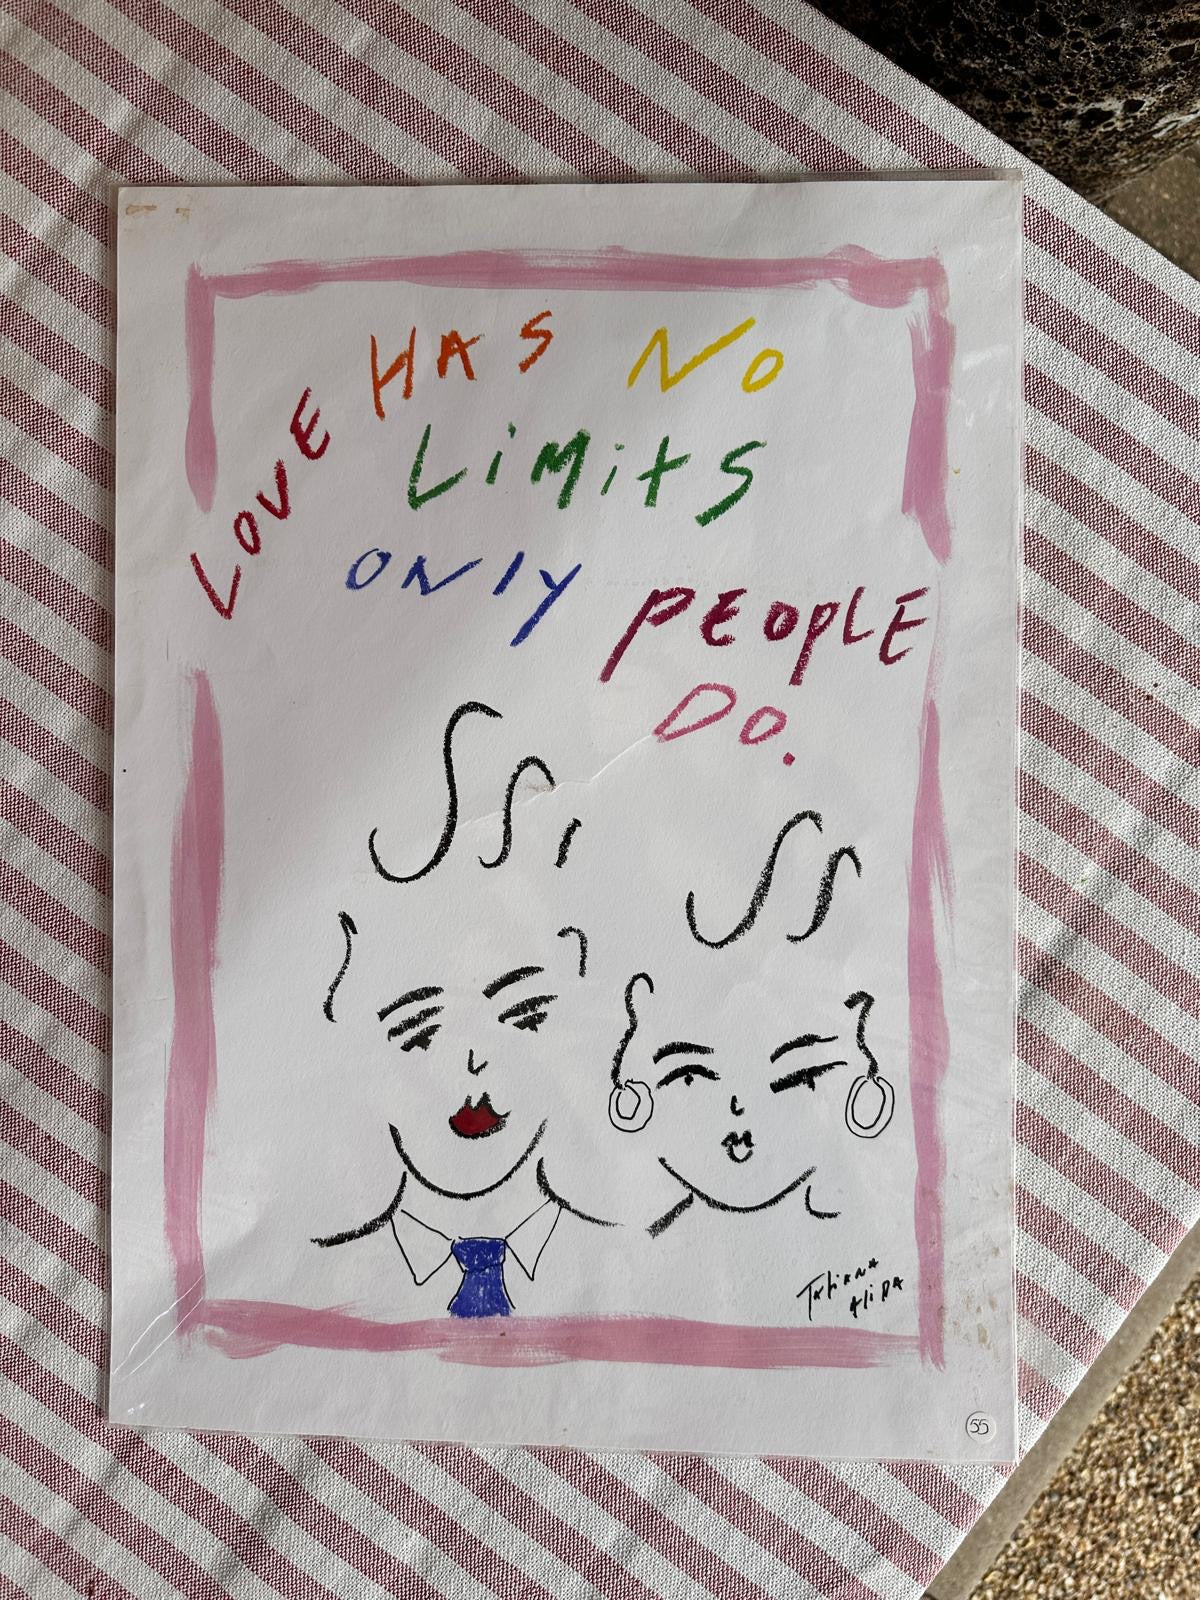 LOVE HAS NO
LiMitS
ONly PEOPLE
DO.
Tatiana
Alida
55